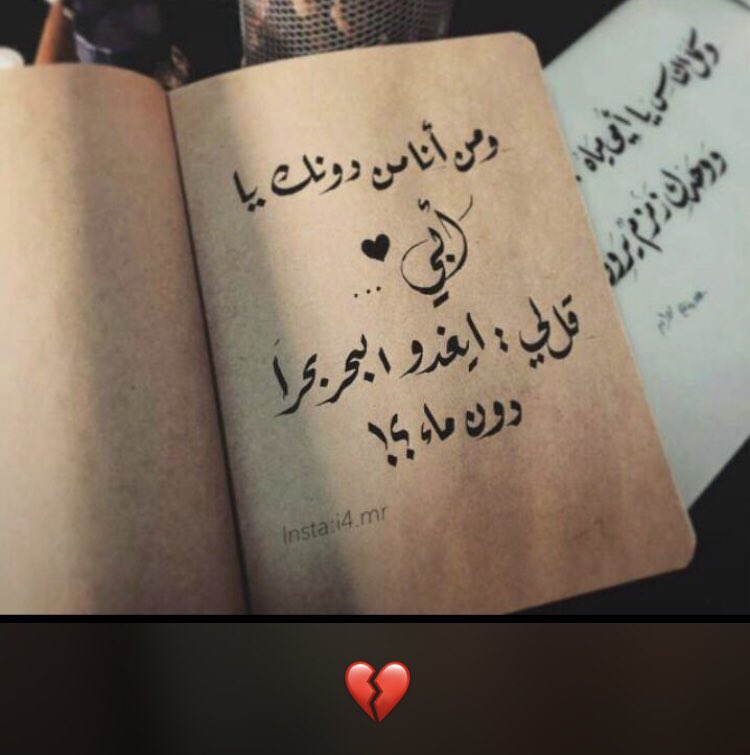 ومن أنا من دونك يا
أبي ♥
...
قال لي : ايغدو البحر بحراً
دون ماء ؟!
Insta:i4.mr
وكل الناس يا أمي مياه
ووحدك زمزم يروي
💔